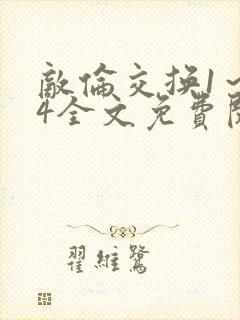 敵倫交换1~
4全文免費閱
翟維鷺